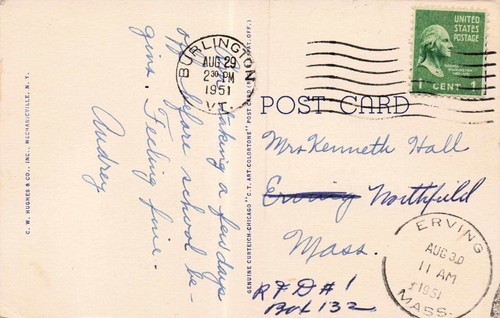 C. W. HUGHES & CO., INC., MECHANICVILLE, N. Y.
Am taking a few days
off before school be-
gins. Feeling fine.
Audrey
GENUINE CURTEICH-CHICAGO "C.T. ART-COLORTONE" POST CARD (REG. U.S. PAT. OFF.)
BURLINGTON
AUG 29
2 30 PM
1951
VT.
UNITED
STATES
POSTAGE
1 CENT 1
POST CARD
Mrs Kenneth Hall
Erving Northfield
Mass.
R F D # 1
Box 132
ERVING
AUG 30
11 AM
1951
MASS.